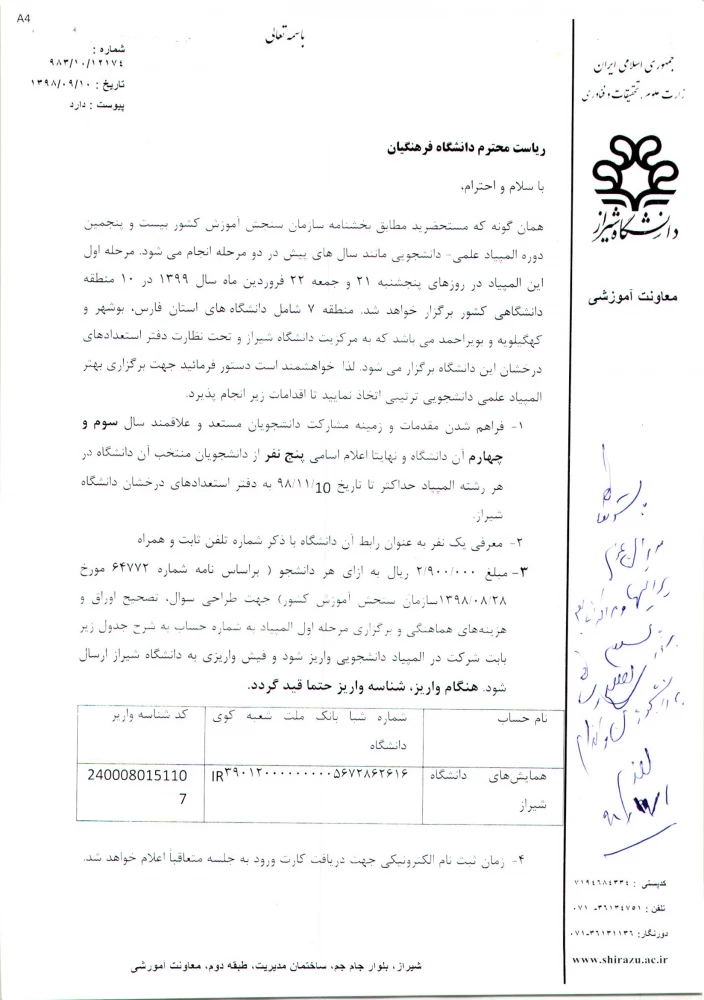 A4
باسمه تعالی
شماره :
۹۸۳/۱۰/۱۲۱۷٤
تاریخ : ۱۳۹۸/۰۹/۱۰
پیوست : دارد
جمهوری اسلامی ایران
زارت علوم، تحقیقات و فناوری
دانشگاه شیراز
معاونت آموزشی
ریاست محترم دانشگاه فرهنگیان
با سلام و احترام،
همان گونه که مستحضرید مطابق بخشنامه سازمان سنجش آموزش کشور بیست و پنجمین
دوره المپیاد علمی- دانشجویی مانند سال های پیش در دو مرحله انجام می شود. مرحله اول
این المپیاد در روزهای پنجشنبه ۲۱ و جمعه ۲۲ فروردین ماه سال ۱۳۹۹ در ۱۰ منطقه
دانشگاهی کشور برگزار خواهد شد. منطقه ۷ شامل دانشگاه های استان فارس، بوشهر و
کهگیلویه و بویراحمد می باشد که به مرکزیت دانشگاه شیراز و تحت نظارت دفتر استعدادهای
درخشان این دانشگاه برگزار می شود. لذا خواهشمند است دستور فرمائید جهت برگزاری بهتر
المپیاد علمی دانشجویی ترتیبی اتخاذ نمایید تا اقدامات زیر انجام پذیرد.
۱- فراهم شدن مقدمات و زمینه مشارکت دانشجویان مستعد و علاقمند سال سوم و
چهارم آن دانشگاه و نهایتا اعلام اسامی پنج نفر از دانشجویان منتخب آن دانشگاه در
هر رشته المپیاد حداکثر تا تاریخ ۹۸/۱۱/10 به دفتر استعدادهای درخشان دانشگاه
شیراز.
۲- معرفی یک نفر به عنوان رابط آن دانشگاه با ذکر شماره تلفن ثابت و همراه
۳- مبلغ ۲/۹۰۰/۰۰۰ ریال به ازای هر دانشجو ( براساس نامه شماره ۶۴۷۷۲ مورخ
۱۳۹۸/۰۸/۲۸سازمان سنجش آموزش کشور) جهت طراحی سوال، تصحیح اوراق و
هزینه‌های هماهنگی و برگزاری مرحله اول المپیاد به شماره حساب به شرح جدول زیر
بابت شرکت در المپیاد دانشجویی واریز شود و فیش واریزی به دانشگاه شیراز ارسال
شود. هنگام واریز، شناسه واریز حتما قید گردد.
نام حساب
شماره شبا بانک ملت شعبه کوی
دانشگاه
کد شناسه واریز
همایش‌های دانشگاه
شیراز
IR۳۹۰۱۲۰۰۰۰۰۰۰۰۰۰۵۶۷۲۸۶۲۶۱۶
240008015110
7
۴- زمان ثبت نام الکترونیکی جهت دریافت کارت ورود به جلسه متعاقباً اعلام خواهد شد.
کدپستی : ۷۱۹٤٦۸٤۳۳٤
تلفن : ۳٦۱۳٤۷٥۱- ۰۷۱
دورنگار: ۳٦۱۳۱۱۳٦-۰۷۱
www.shirazu.ac.ir
شیراز، بلوار جام جم، ساختمان مدیریت، طبقه دوم، معاونت آموزشی